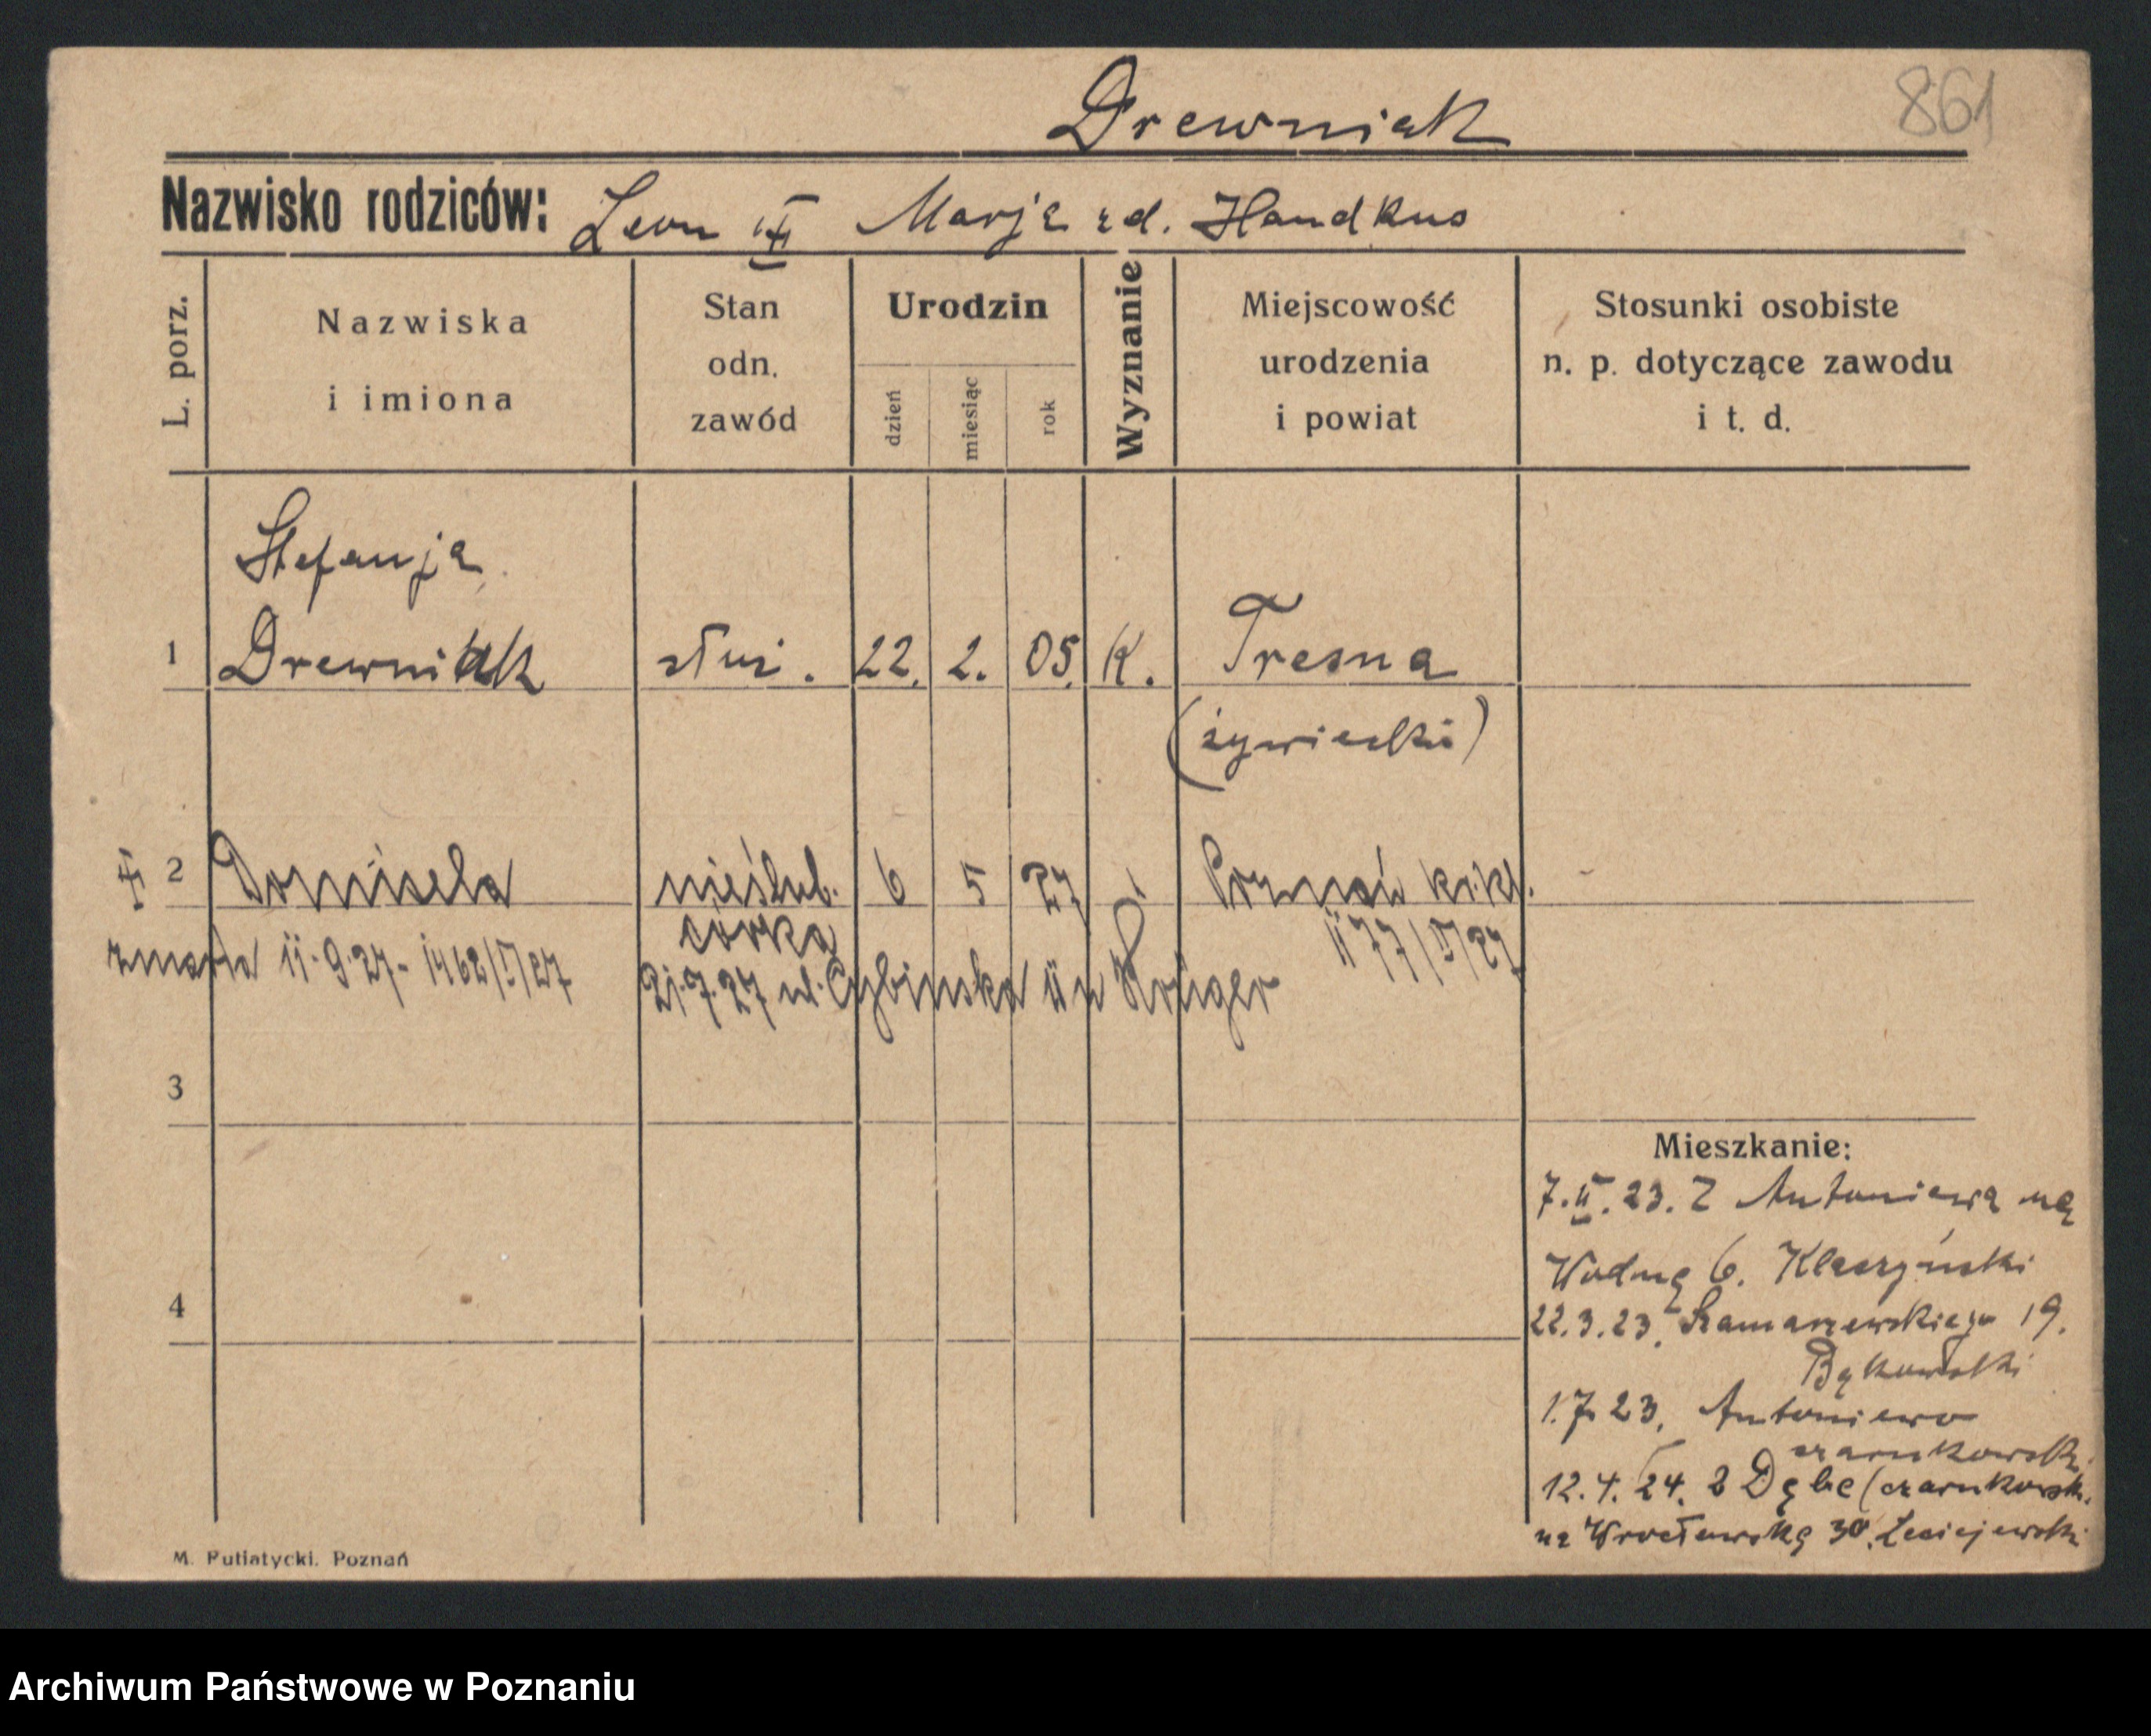 Drewniak
861
Nazwisko rodziców: Leon Marja zd. Handkus
L. porz.
Nazwiska
i imiona
Stan
odn.
zawód
Urodzin
dzień
miesiąc
rok
Wyznanie
Miejscowość
urodzenia
i powiat
Stosunki osobiste
n. p. dotyczące zawodu
i t. d.
Stefanja
1 Drewniak służ. 22. 2. 05. K. Tresna
(żywiecki)
2 Domicela nieślub. 6 5 27 Poznań
córka
zmarła 11.9.27 - 1462/V/27
1177/V/27
21.7.27 ul. Cybinska 11 u Krüger
3
4
Mieszkanie:
7.II.23. Z Antoniewa na
Wodną 6. Kleszyński
22.3.23. Szamarzewskiego 19.
Bąkowski
1.7.23. Antoniewo
czarnkowski
12.4.24. z Dębe (czarnkowsk.
na Wrocławską 30.
M. Putiatycki. Poznań
Archiwum Państwowe w Poznaniu